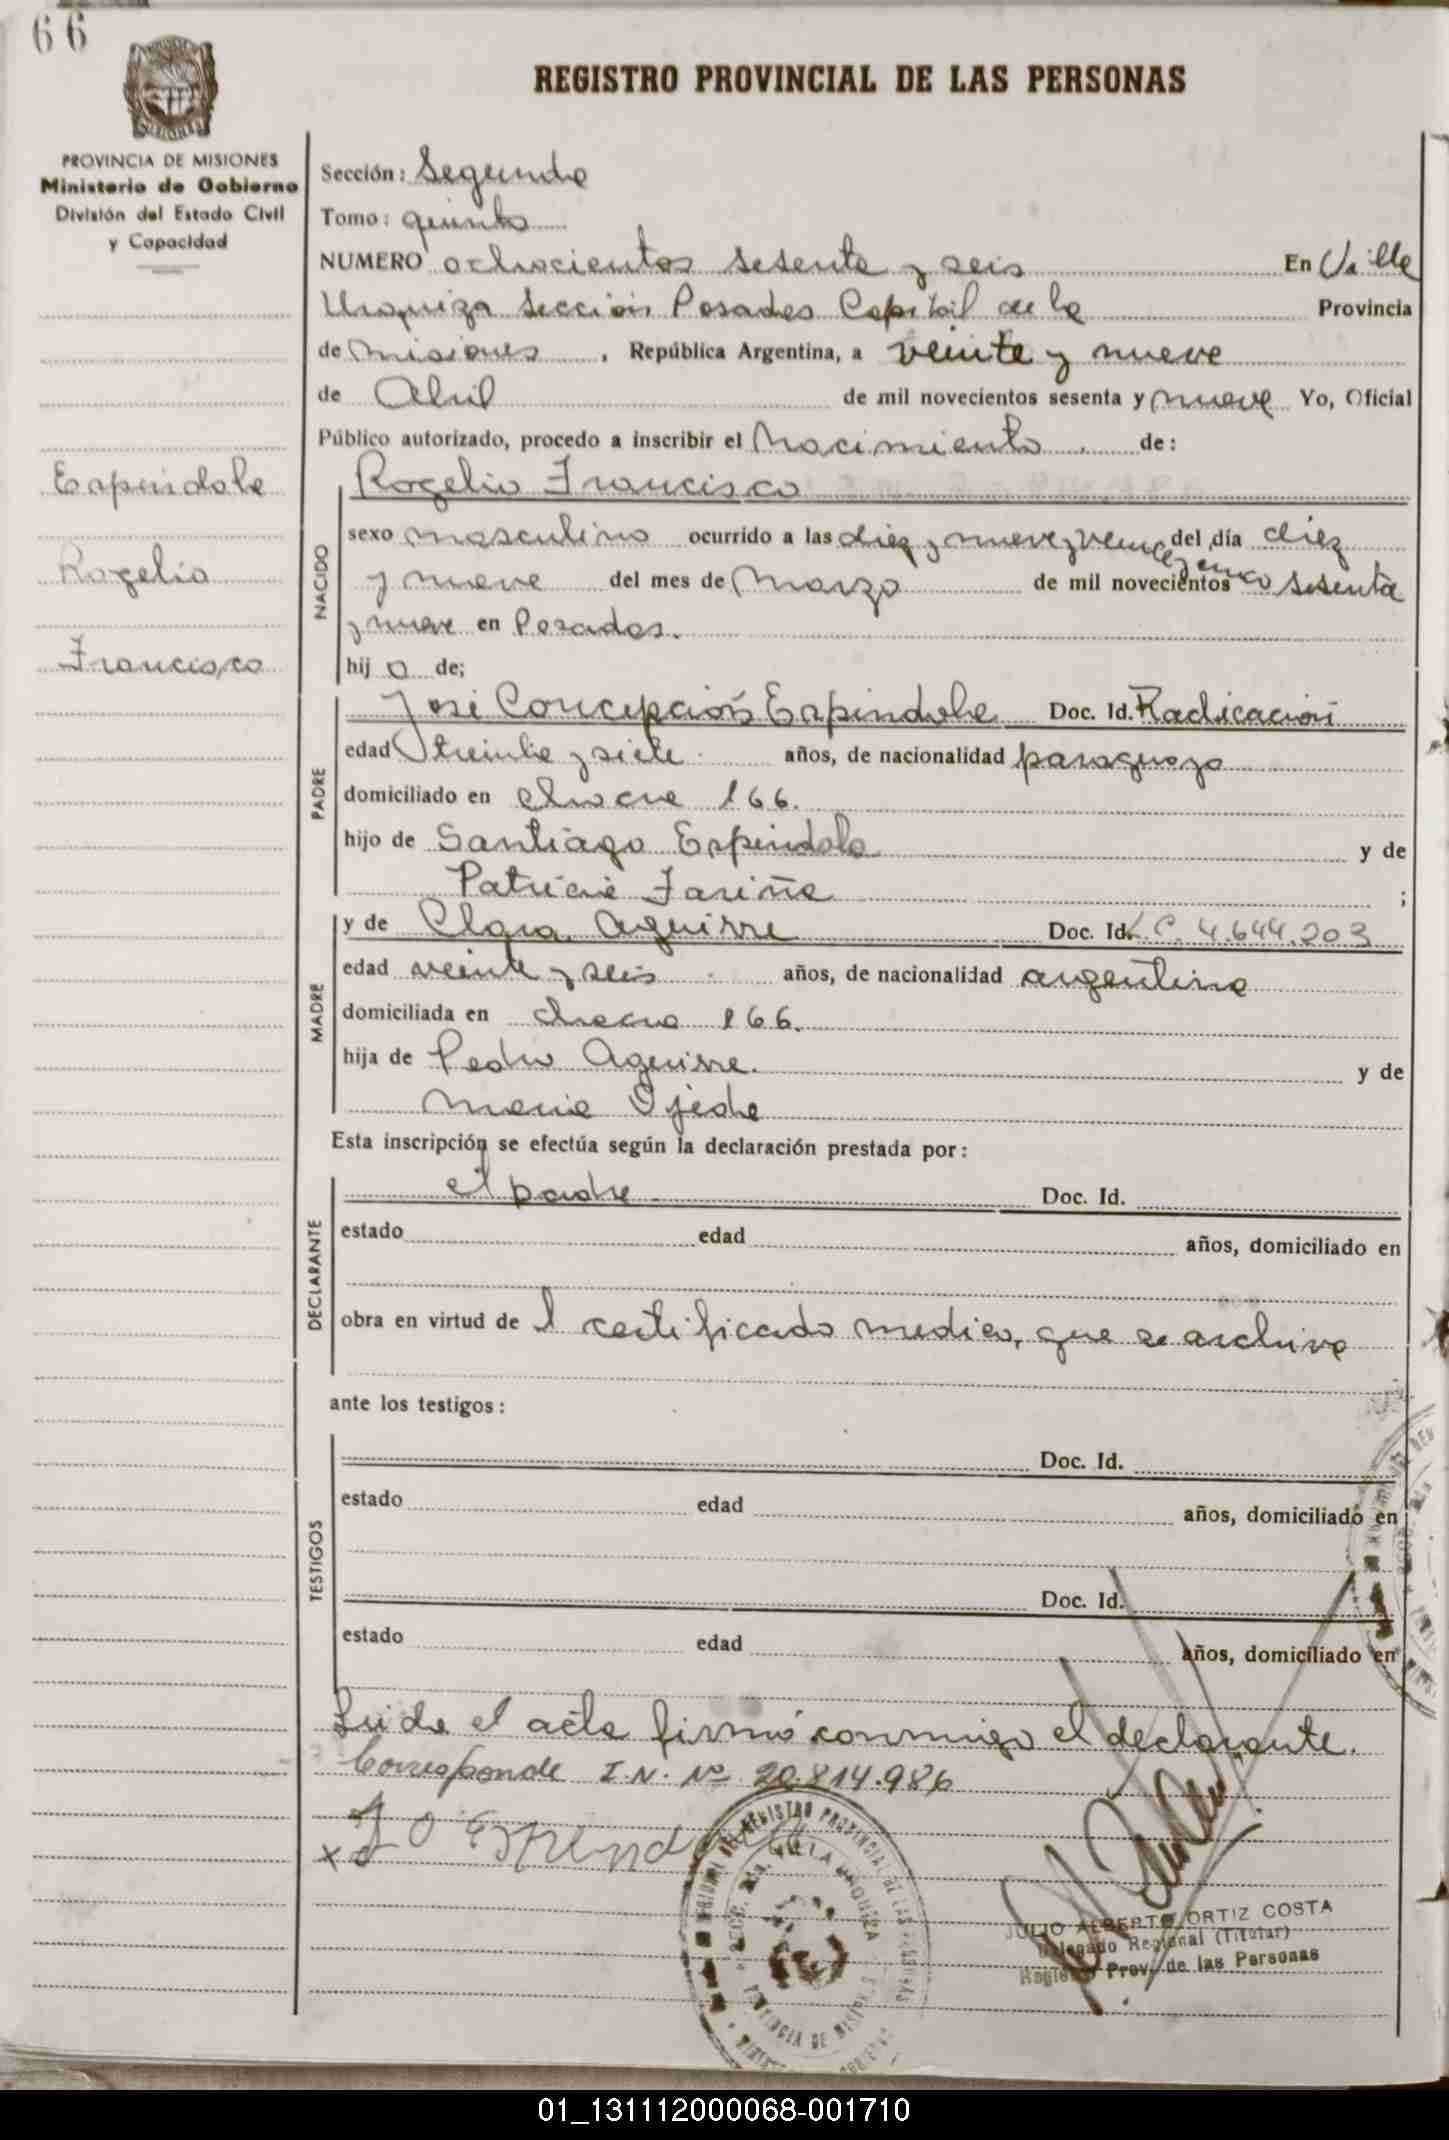 66
REGISTRO PROVINCIAL DE LAS PERSONAS
PROVINCIA DE MISIONES
Ministerio de Gobierno
División del Estado Civil
y Capacidad
Espindola
Rogelio
Francisco
Sección: Segunda
Tomo: quinto
NUMERO ochocientos sesenta y seis En Villa
Urquiza Sección Posadas Capital de la Provincia
de Misiones, República Argentina, a veinte y nueve
de Abril de mil novecientos sesenta y nueve Yo, Oficial
Público autorizado, procedo a inscribir el Nacimiento de:
NACIDO
Rogelio Francisco
sexo masculino ocurrido a las diez y nueve y veinte y cinco del día diez
y nueve del mes de Marzo de mil novecientos sesenta
y nueve en Posadas.
hijo de;
PADRE
José Concepción Espindola Doc. Id. Radicación
edad treinta y siete años, de nacionalidad paraguayo
domiciliado en chacra 166.
hijo de Santiago Espindola y de
Patricia Fariña ;
MADRE
y de Clara Aguirre Doc. Id. L.C. 4.644.203
edad veinte y seis años, de nacionalidad argentina
domiciliada en chacra 166.
hija de Pedro Aguirre. y de
Maria Ojeda
Esta inscripción se efectúa según la declaración prestada por:
DECLARANTE
el padre Doc. Id.
estado edad años, domiciliado en
obra en virtud de l certificado medico, que se archiva
ante los testigos:
TESTIGOS
Doc. Id.
estado edad años, domiciliado en
Doc. Id.
estado edad años, domiciliado en
Leida el acta firmó conmigo el declarante.
Corresponde I.N. Nº 20.814.986
JULIO ALBERTO ORTIZ COSTA
Delegado Regional (Titular)
Registro Prov. de las Personas
REGISTRO PROVINCIAL DE LAS PERSONAS
VILLA URQUIZA
PROVINCIA DE MISIONES
01_131112000068-001710